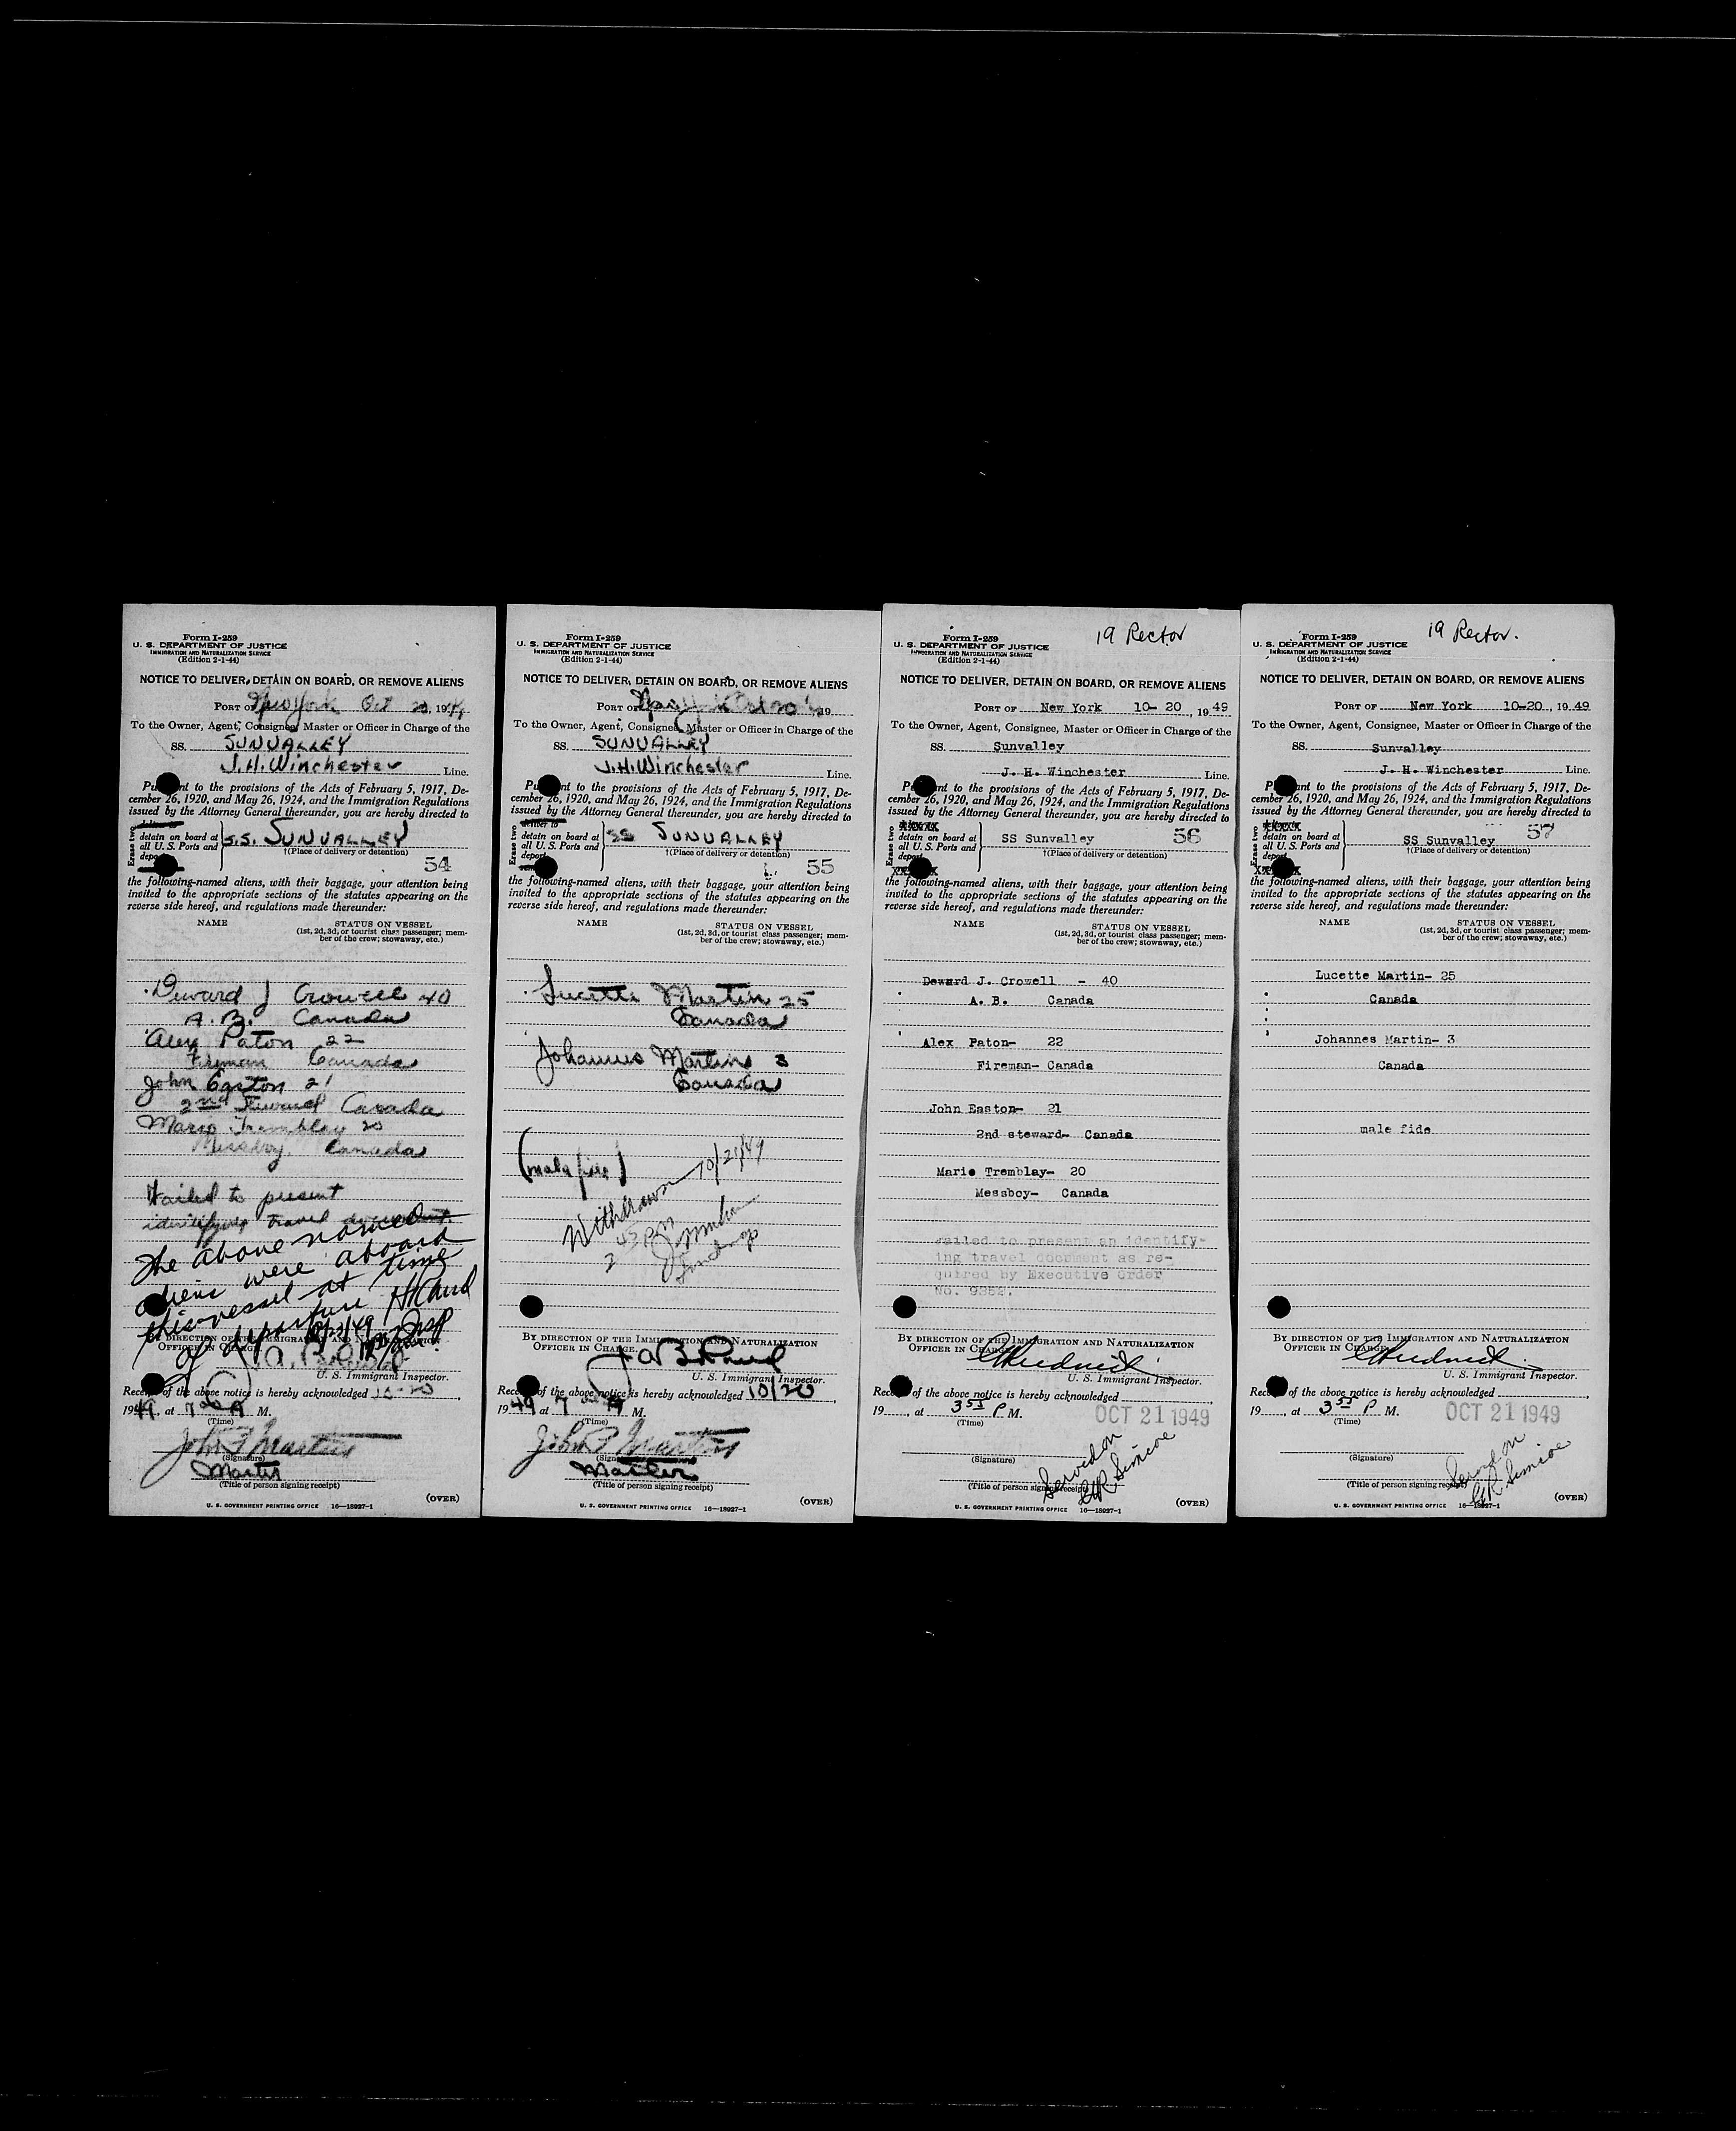 Form I-259
U. S. DEPARTMENT OF JUSTICE
IMMIGRATION AND NATURALIZATION SERVICE
(Edition 2-1-44)
NOTICE TO DELIVER, DETAIN ON BOARD, OR REMOVE ALIENS
PORT OF New York Oct 20, 1949
To the Owner, Agent, Consignee, Master or Officer in Charge of the
SS. SUNVALLEY
J.H. Winchester Line.
Pu nt to the provisions of the Acts of February 5, 1917, De-
cember 26, 1920, and May 26, 1924, and the Immigration Regulations
issued by the Attorney General thereunder, you are hereby directed to
Erase two
detain on board at
all U. S. Ports and
depor
S.S. SUNVALLEY
†(Place of delivery or detention)
54
the following-named aliens, with their baggage, your attention being
invited to the appropriate sections of the statutes appearing on the
reverse side hereof, and regulations made thereunder:
NAME STATUS ON VESSEL
(1st, 2d, 3d, or tourist class passenger; mem-
ber of the crew; stowaway, etc.)
Deward J Crowell 40
A.B. Canada
Alex Paton 22
Fireman Canada
John Easton 21
2nd Steward Canada
Mario Tremblay 20
Messboy Canada
Failed to present
identifying travel document.
The above named
aliens were aboard
this vessel at time
of departure
10/22/49
BY DIRECTION OF THE IMMIGRATION AND NATURALIZATION
OFFICER IN CHARGE.
U. S. Immigrant Inspector.
Rece of the above notice is hereby acknowledged 10-20,
1949, at 7 00 A M.
(Time)
John F Martin
(Signature)
Master
(Title of person signing receipt)
U. S. GOVERNMENT PRINTING OFFICE 16—18927-1
(OVER)
Form I-259
U. S. DEPARTMENT OF JUSTICE
IMMIGRATION AND NATURALIZATION SERVICE
(Edition 2-1-44)
NOTICE TO DELIVER, DETAIN ON BOARD, OR REMOVE ALIENS
PORT OF New York Oct 20 49
To the Owner, Agent, Consignee, Master or Officer in Charge of the
SS. SUNVALLEY
J.H. Winchester Line.
Pu nt to the provisions of the Acts of February 5, 1917, De-
cember 26, 1920, and May 26, 1924, and the Immigration Regulations
issued by the Attorney General thereunder, you are hereby directed to
Erase two
deliver to
detain on board at
all U. S. Ports and
deport
SS SUNVALLEY
†(Place of delivery or detention)
55
the following-named aliens, with their baggage, your attention being
invited to the appropriate sections of the statutes appearing on the
reverse side hereof, and regulations made thereunder:
NAME STATUS ON VESSEL
(1st, 2d, 3d, or tourist class passenger; mem-
ber of the crew; stowaway, etc.)
Lucette Martin 25
Canada
Johannes Martin 3
Canada
(mala fide)
Withdrawn 10/21/49
2 45 PM
BY DIRECTION OF THE IMMIGRATION AND NATURALIZATION
OFFICER IN CHARGE.
U. S. Immigrant Inspector.
Rece of the above notice is hereby acknowledged 10/20,
1949 at 7 00 A M.
(Time)
John F Martin
(Signature)
Master
(Title of person signing receipt)
U. S. GOVERNMENT PRINTING OFFICE 16—18927-1
(OVER)
19 Rector
Form I-259
U. S. DEPARTMENT OF JUSTICE
IMMIGRATION AND NATURALIZATION SERVICE
(Edition 2-1-44)
NOTICE TO DELIVER, DETAIN ON BOARD, OR REMOVE ALIENS
PORT OF New York 10- 20, 19 49
To the Owner, Agent, Consignee, Master or Officer in Charge of the
SS. Sunvalley
J. H. Winchester Line.
P nt to the provisions of the Acts of February 5, 1917, De-
cember 26, 1920, and May 26, 1924, and the Immigration Regulations
issued by the Attorney General thereunder, you are hereby directed to
Erase two
detain on board at
all U. S. Ports and
deport
SS Sunvalley
†(Place of delivery or detention)
56
the following-named aliens, with their baggage, your attention being
invited to the appropriate sections of the statutes appearing on the
reverse side hereof, and regulations made thereunder:
NAME STATUS ON VESSEL
(1st, 2d, 3d, or tourist class passenger; mem-
ber of the crew; stowaway, etc.)
Deward J. Crowell - 40
A. B. Canada
Alex Paton- 22
Fireman- Canada
John Easton- 21
2nd steward- Canada
Mario Tremblay- 20
Messboy- Canada
Failed to present an identify-
ing travel document as re-
quired by Executive Order
No. 9352.
BY DIRECTION OF THE IMMIGRATION AND NATURALIZATION
OFFICER IN CHARGE.
U. S. Immigrant Inspector.
Rece of the above notice is hereby acknowledged
19 , at 3 55 P M.
(Time)
OCT 21 1949
(Signature)
Served on
Simcoe
(Title of person signing receipt)
U. S. GOVERNMENT PRINTING OFFICE 16—18927-1
(OVER)
19 Rector.
Form I-259
U. S. DEPARTMENT OF JUSTICE
IMMIGRATION AND NATURALIZATION SERVICE
(Edition 2-1-44)
NOTICE TO DELIVER, DETAIN ON BOARD, OR REMOVE ALIENS
PORT OF New York 10-20, 19 49
To the Owner, Agent, Consignee, Master or Officer in Charge of the
SS. Sunvalley
J. H. Winchester Line.
P ant to the provisions of the Acts of February 5, 1917, De-
cember 26, 1920, and May 26, 1924, and the Immigration Regulations
issued by the Attorney General thereunder, you are hereby directed to
Erase two
detain on board at
all U. S. Ports and
deport
SS Sunvalley
†(Place of delivery or detention)
57
the following-named aliens, with their baggage, your attention being
invited to the appropriate sections of the statutes appearing on the
reverse side hereof, and regulations made thereunder:
NAME STATUS ON VESSEL
(1st, 2d, 3d, or tourist class passenger; mem-
ber of the crew; stowaway, etc.)
Lucette Martin- 25
Canada
Johannes Martin- 3
Canada
male fide
BY DIRECTION OF THE IMMIGRATION AND NATURALIZATION
OFFICER IN CHARGE.
U. S. Immigrant Inspector.
Rece of the above notice is hereby acknowledged
19 , at 3 55 P M.
(Time)
OCT 21 1949
(Signature)
Served on
Simcoe
(Title of person signing receipt)
U. S. GOVERNMENT PRINTING OFFICE 16—18927-1
(OVER)